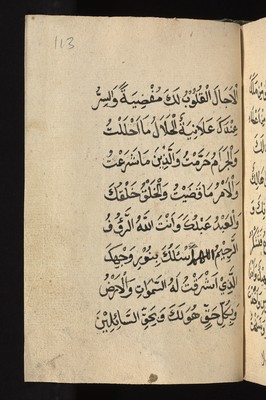 113
الاجال القلوب لك مفضية والسر
عندك علانية الحلال ما احللت
والحرام حرمت والدين ما شرعت
والامر ما قضيت والخلق خلقك
والعبد عبدك وانت الله الرؤف
الرحيم اللهم اسئلك بنور وجهك
الذي اشرقت له السموات والارض
وبكل حق هو لك وبحق السائلين